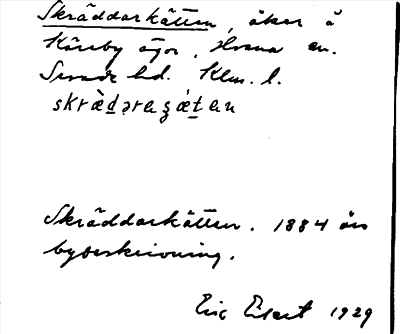 Skräddarkätten, åker å
Kåreby ägor, Hvena sn.
Sevede hd. Klm. l.
skrὰd̠əraʒátən
Skräddarkätten. 1884 års
bybeskrivning.
Eric Elgert 1929